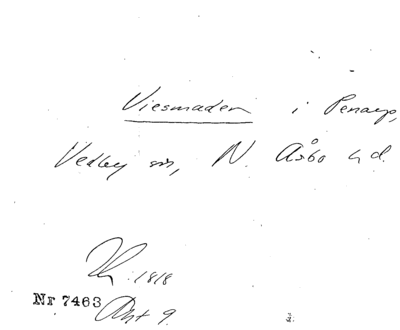 Viesmaden i Penarp,
Vedby sn, N. Åsbo hd.
1818
Nr 7463 Akt 9.
2.